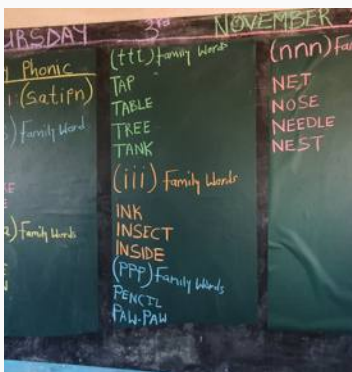 URSDAY 3rd NOVEMBER
Phonic
(satipn)
Family Word
) Family Words
(ttt) Family Words
TAP
TABLE
TREE
TANK
(iii) Family Words
INK
INSECT
INSIDE
(PPP) Family Words
PENCIL
PAW-PAW
(nnn) Fa
NET
NOSE
NEEDLE
NEST